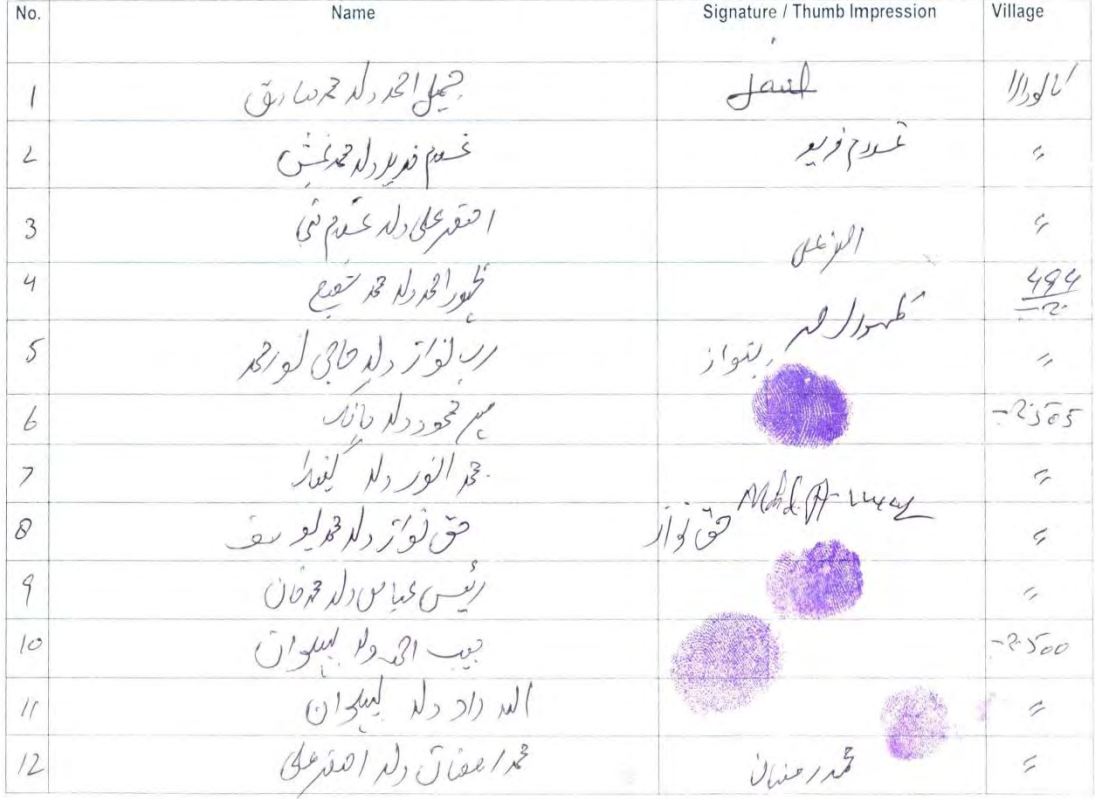 No. Name Signature / Thumb Impression Village
1 جمیل احمد ولد محمد صادق Jamil
2 غلام فرید ولد محمد بخش غلام فرید 〃
3 اصغر علی ولد غلام نبی اصغر علی 〃
4 ظہور احمد ولد محمد شفیع ظہور احمد 494
5 رب نواز ولد حاجی نور محمد ربنواز 〃
6 محمود ولد 505
7 محمد انور ولد 〃
8 حق نواز ولد محمد یوسف حق نواز 〃
9 رئیس عباس ولد محمد خان 〃
10 احمد ولد پہلوان 500
11 اللہ داد ولد پہلوان 〃
12 محمد رمضان ولد اصغر علی محمد رمضان 〃